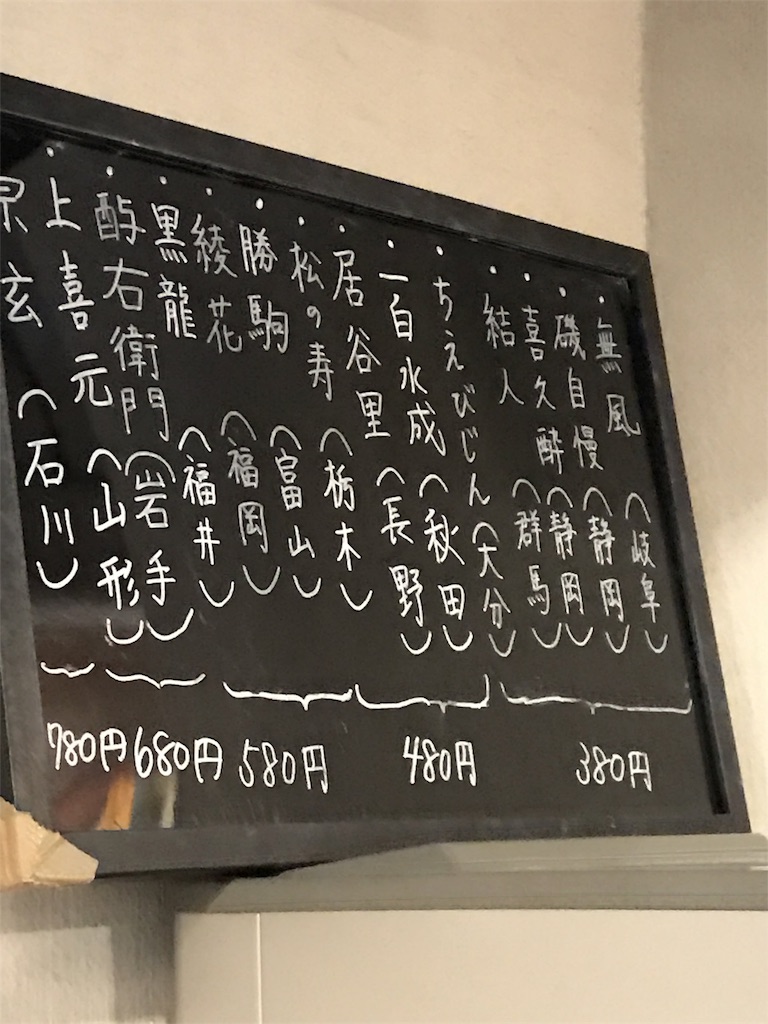 ・無風（岐阜）
・磯自慢（静岡）
・喜久酔（静岡）
・結人（群馬）
・ちえびじん（大分）
・一白水成（秋田）
・居谷里（長野）
・松の寿（栃木）
・勝駒（富山）
・綾花（福岡）
・黒龍（福井）
・酉与右衛門（岩手）
・上喜元（山形）
玄（石川）
380円
480円
580円
680円
780円